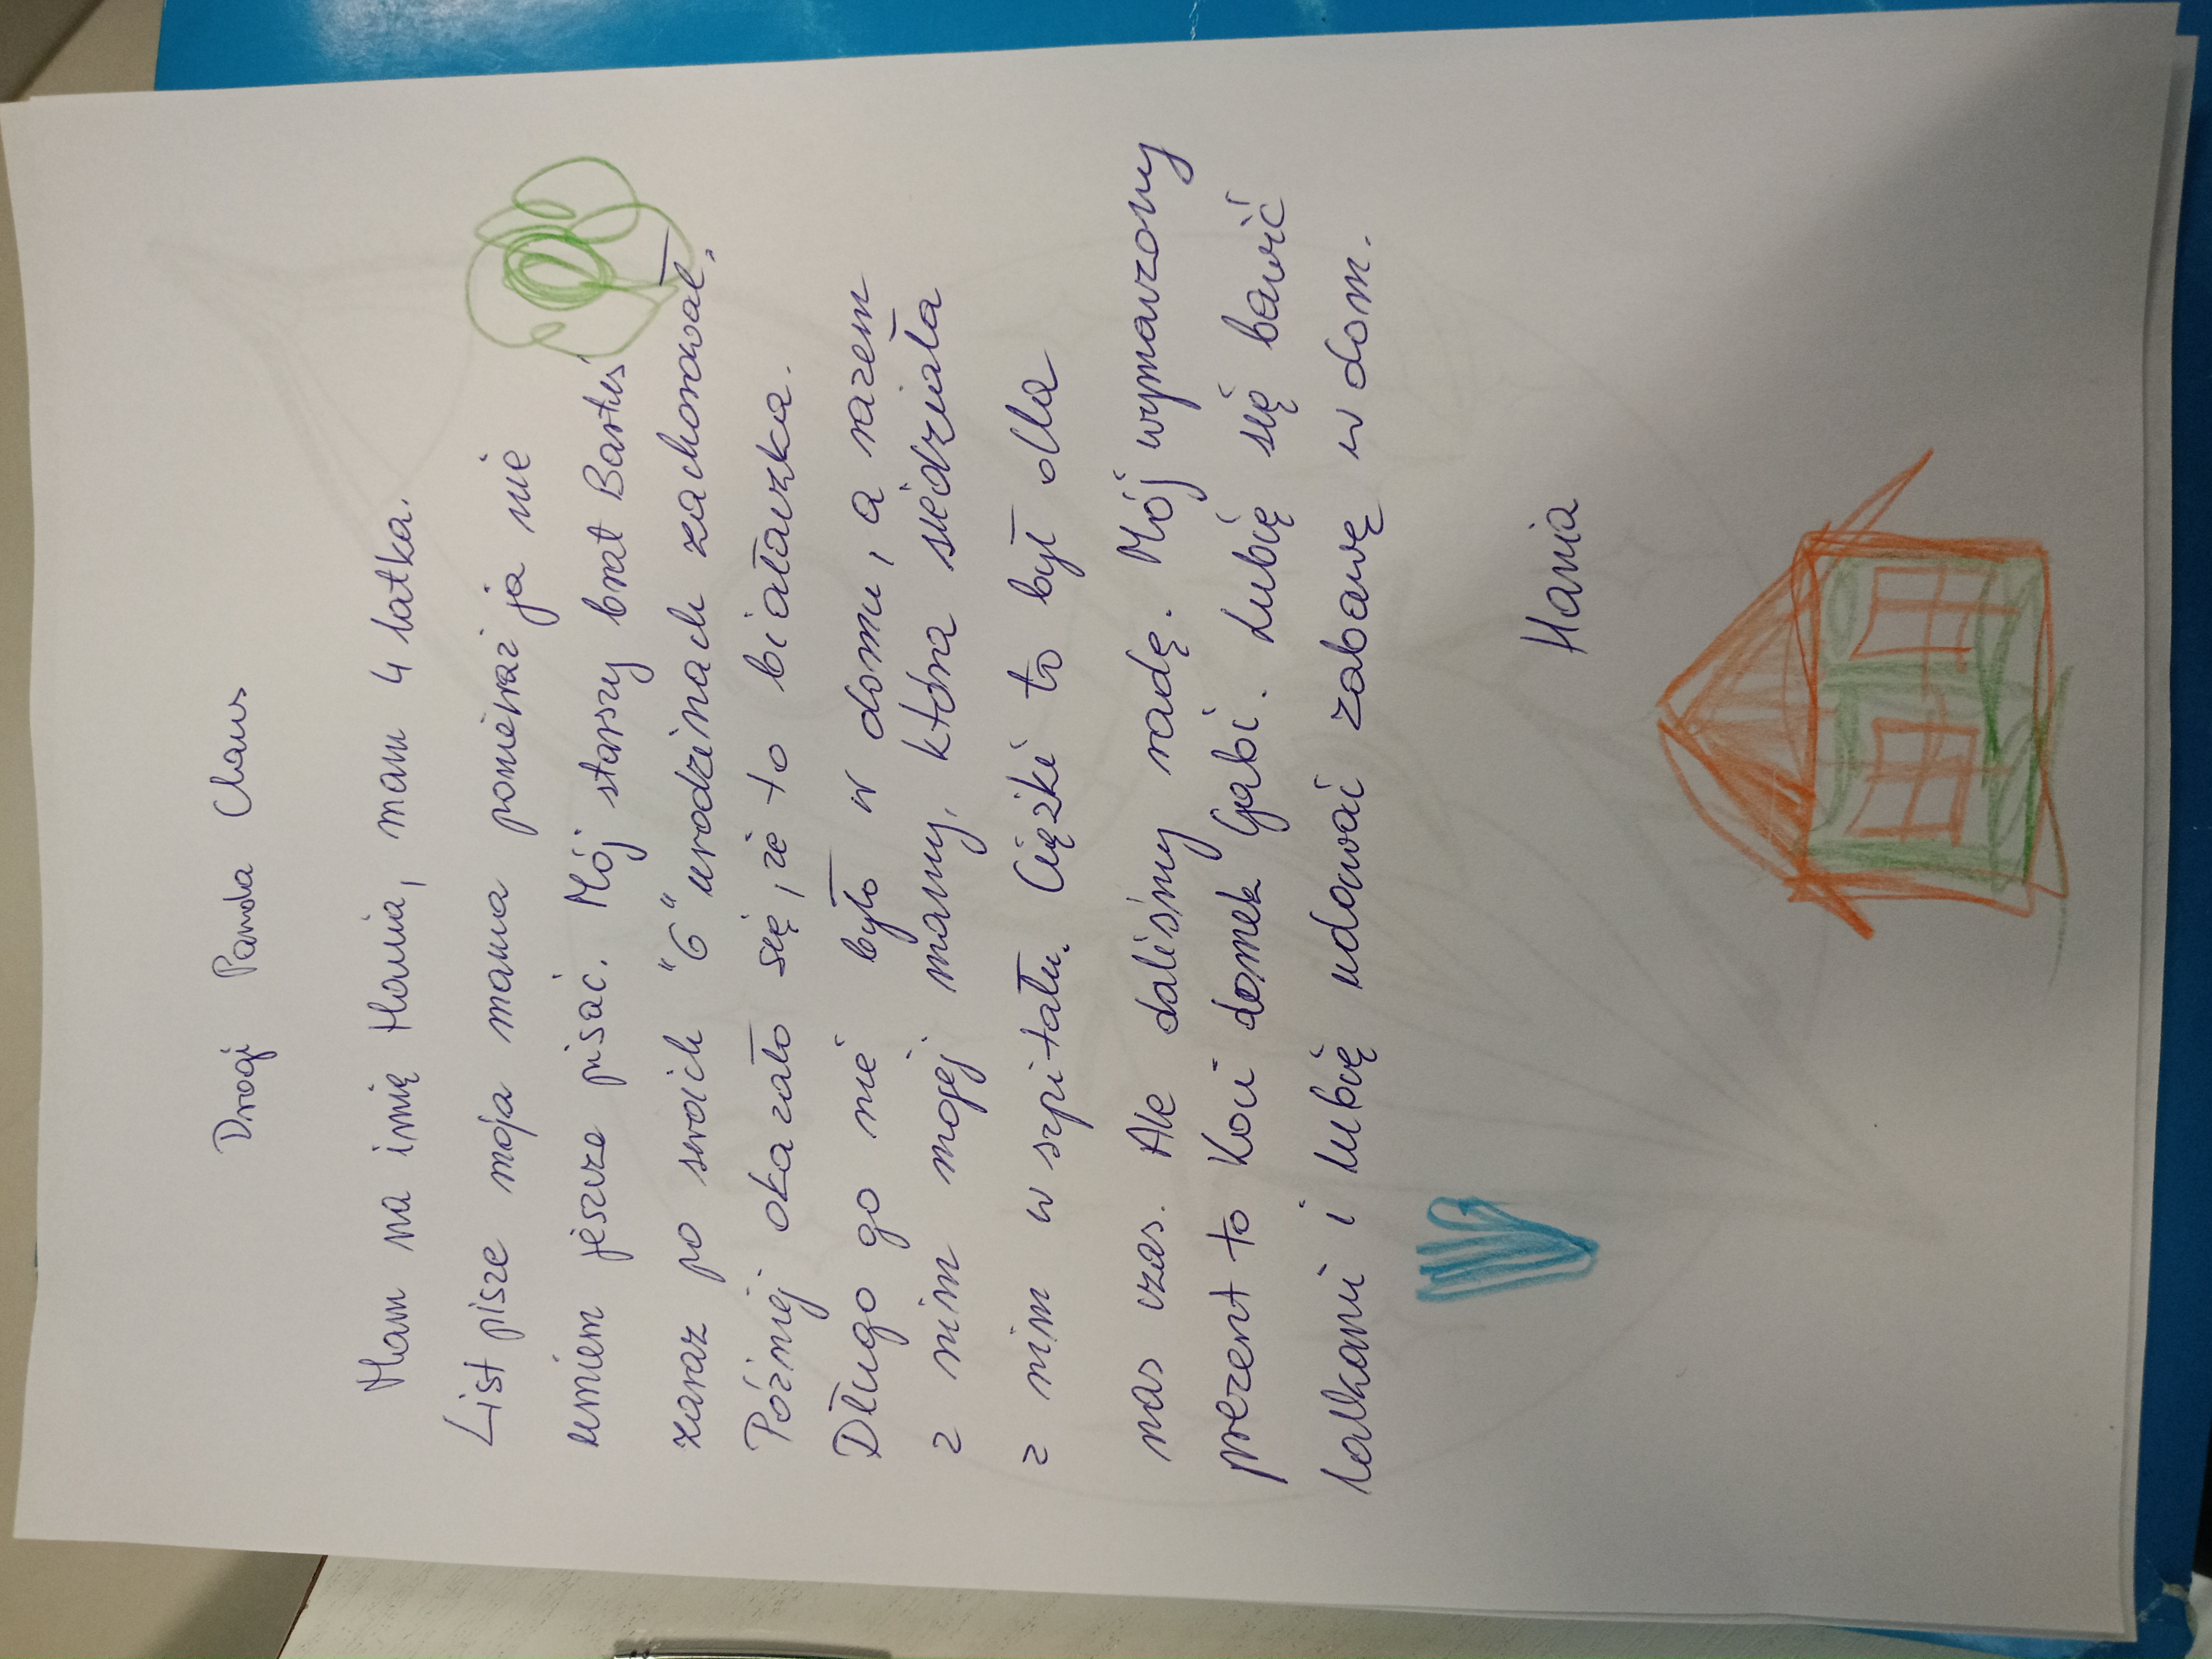 Drogi Panda Claus
Mam na imię Hania, mam 4 latka.
List pisze moja mama ponieważ ja nie
umiem jeszcze pisać. Mój starszy brat Bartuś
zaraz po swoich "6" urodzinach zachorował.
Później okazało się, że to białaczka.
Długo go nie było w domu, a razem
z nim mojej mamy, która siedziała
z nim w szpitalu. Ciężki to był dla
nas czas. Ale daliśmy radę. Mój wymarzony
prezent to Koci domek Gabi. Lubię się bawić
lalkami i lubię udawać zabawę w dom.
Hania